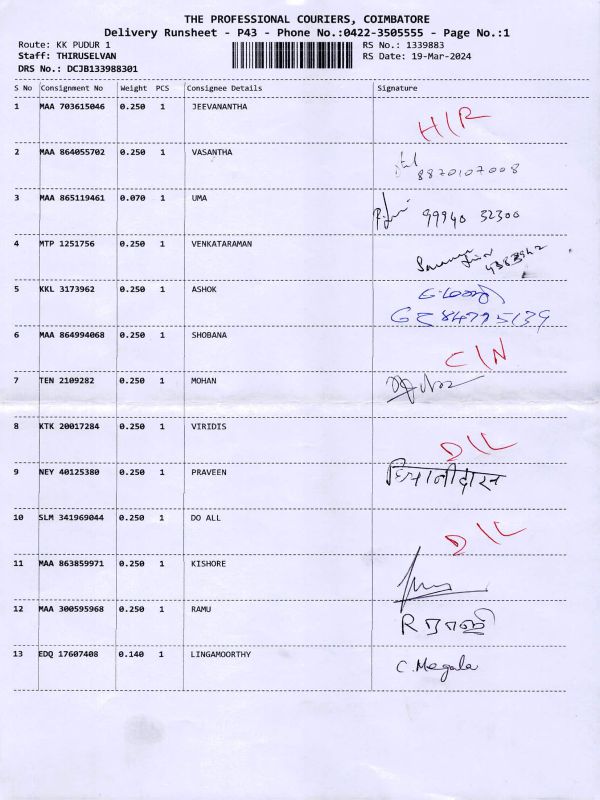 THE PROFESSIONAL COURIERS, COIMBATORE
Delivery Runsheet - P43 - Phone No.:0422-3505555 - Page No.:1
Route: KK PUDUR 1 RS No.: 1339883
Staff: THIRUSELVAN RS Date: 19-Mar-2024
DRS No.: DCJB133988301
S No Consignment No Weight PCS Consignee Details Signature
1 MAA 703615046 0.250 1 JEEVANANTHA
H/R
2 MAA 864055702 0.250 1 VASANTHA
8870107008
3 MAA 865119461 0.070 1 UMA
99940 32300
4 MTP 1251756 0.250 1 VENKATARAMAN
5 KKL 3173962 0.250 1 ASHOK
6 MAA 864994068 0.250 1 SHOBANA
C/N
7 TEN 2109282 0.250 1 MOHAN
8 KTK 20017284 0.250 1 VIRIDIS
D/L
9 NEY 40125380 0.250 1 PRAVEEN
10 SLM 341969044 0.250 1 DO ALL
D/L
11 MAA 863859971 0.250 1 KISHORE
12 MAA 300595968 0.250 1 RAMU
13 EDQ 17607408 0.140 1 LINGAMOORTHY
C. Megala